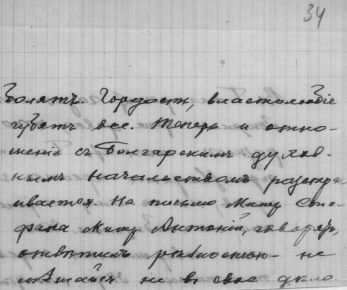 34
волятъ. Гордость, властолюбіе
губятъ все. Теперь и отно-
шенія съ Болгарскимъ духов-
нымъ начальствомъ разстра-
ивается. На письмо Митр. Сте-
фана Митр. Антоній, говорятъ,
отвѣтилъ рѣзкостью - не
мѣшайся не в свое дѣло